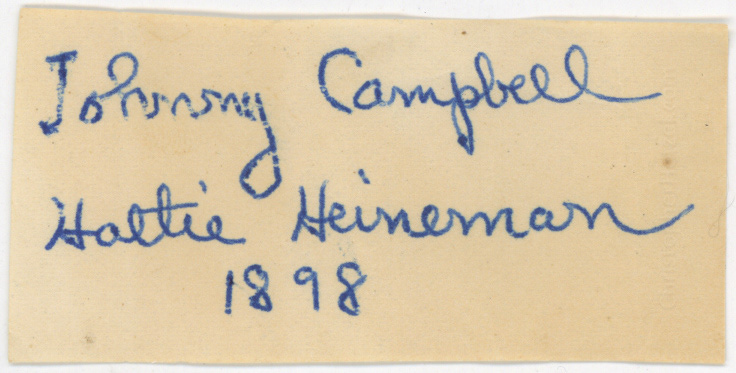 Johnny Campbell
Hattie Heineman
1898